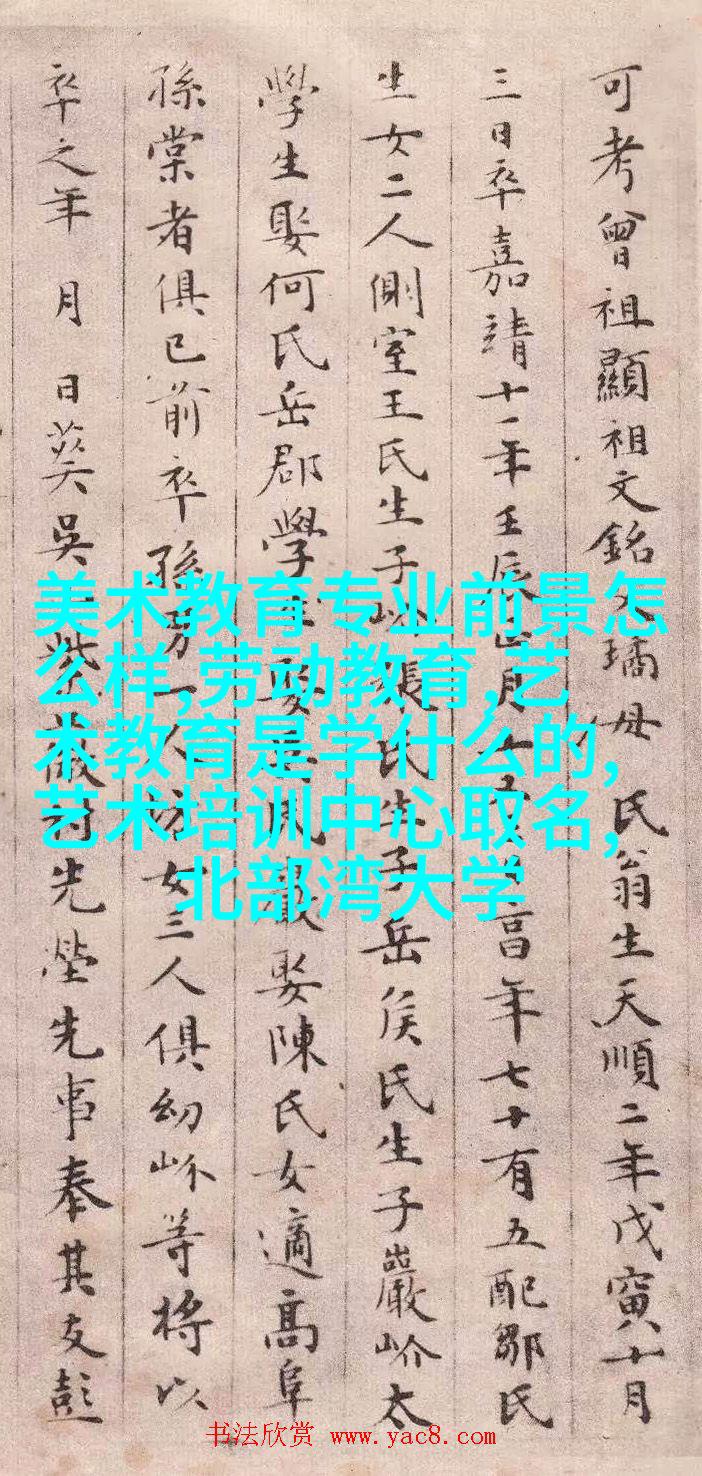 可考曾祖顯祖文銘父璚母 氏翁生天順二年戊寅十月
三日卒嘉靖十一年壬辰正月十五日享年七十有五配鄒氏
生女二人側室王氏生子岎張氏生子岳侯氏生子巖岎太
學生娶何氏岳郡學生娶 氏巖娶陳氏女適高阜
孫棠者俱已前卒孫男一人 女三人俱幼岎等將以
卒之年 月 日葬吳 紫 村先塋先事奉其友彭
美术教育专业前景怎
么样,劳动教育,艺
术教育是学什么的,
艺术培训中心取名,
北部湾大学
书法欣赏 www.yac8.com